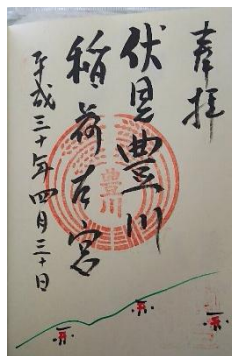 奉拝
伏見豊川
稲荷本宮
平成三十年四月三十日
豊川